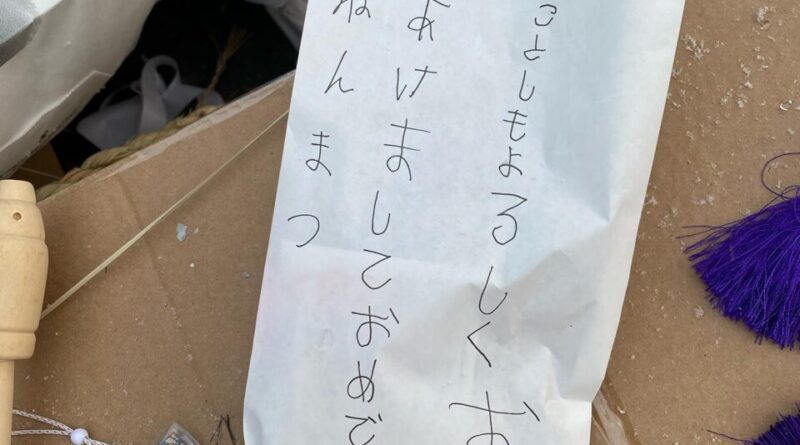 ことしもよろしくお
あけましておめで
ねんまつ